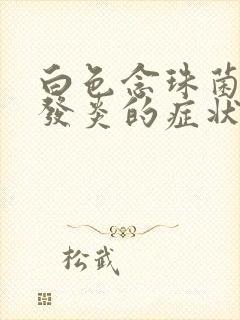 白色念珠菌
發炎的症狀
松武